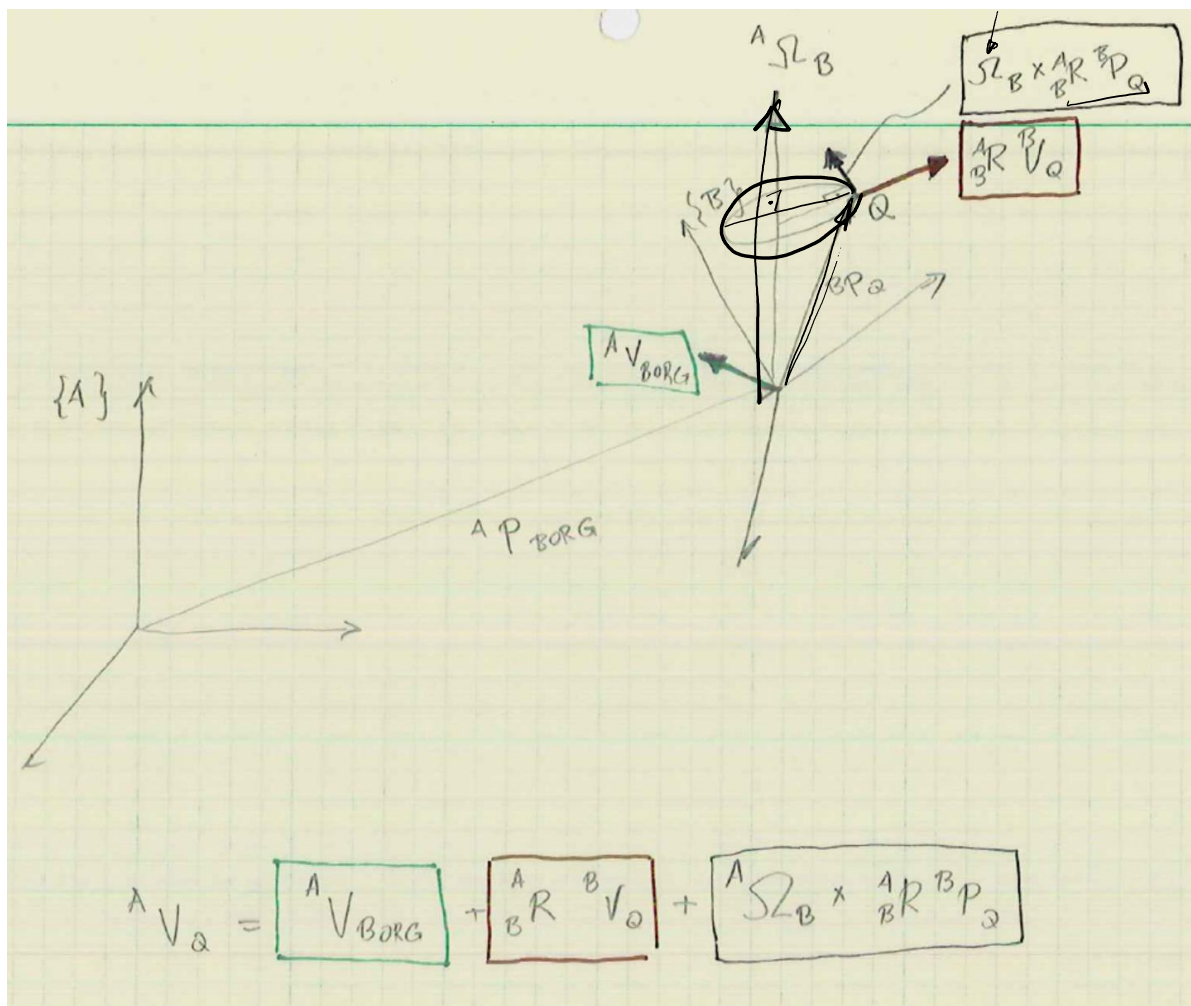 ᴬΩ_B
Ω_B × ᴬ_B R ᴮP_Q
ᴬ_B R ᴮV_Q
{B}
Q
ᴮP_Q
ᴬV_BORG
{A}
ᴬP_BORG
ᴬV_Q = ᴬV_BORG + ᴬ_B R ᴮV_Q + ᴬΩ_B × ᴬ_B R ᴮP_Q